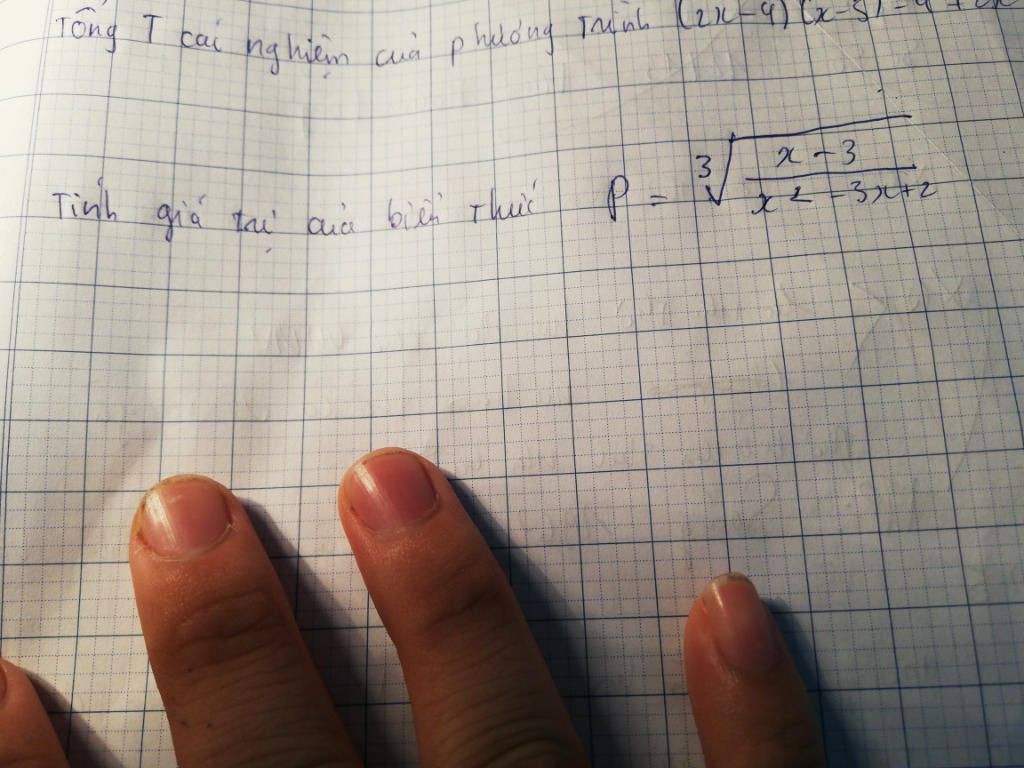 Tổng T cái nghiệm của phương trình (2x-4)(x-5)=4+2x
Tính giá trị của biến thức P = ∛((x-3)/(x²-3x+2))